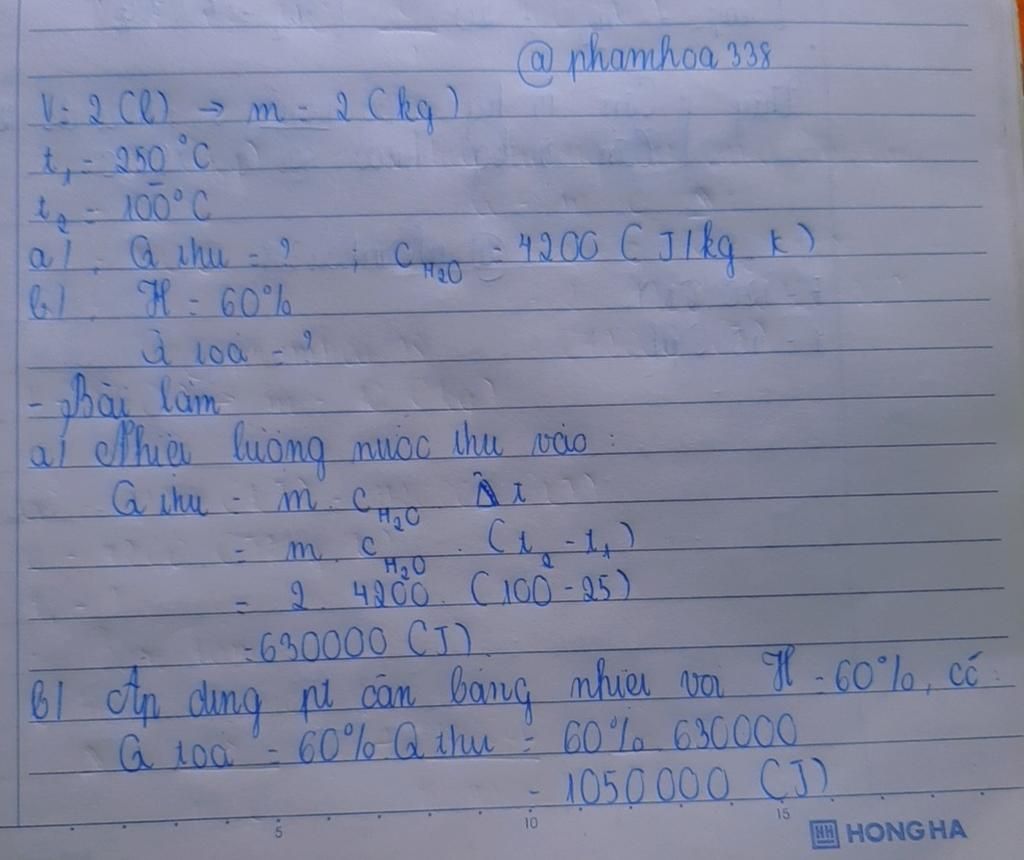 @phamhoa338
V = 2 (l) → m = 2 (kg)
t₁ = 250 °C
t₂ = 100°C
a/. Q thu = ? ; C H₂O = 4200 (J/kg K)
b/. H = 60%
Q toả = ?
- Bài làm
a/ Nhiệt lượng nước thu vào :
Q thu = m. C H₂O Δt
= m. C H₂O . (t₂ - t₁)
= 2. 4200. (100 - 25)
= 630000 (J)
b/ Áp dụng pt cân bằng nhiệt với H = 60%, có:
Q toả = 60% Q thu = 60%. 630000
= 1050000 (J)
5 10 15
HH HONG HA